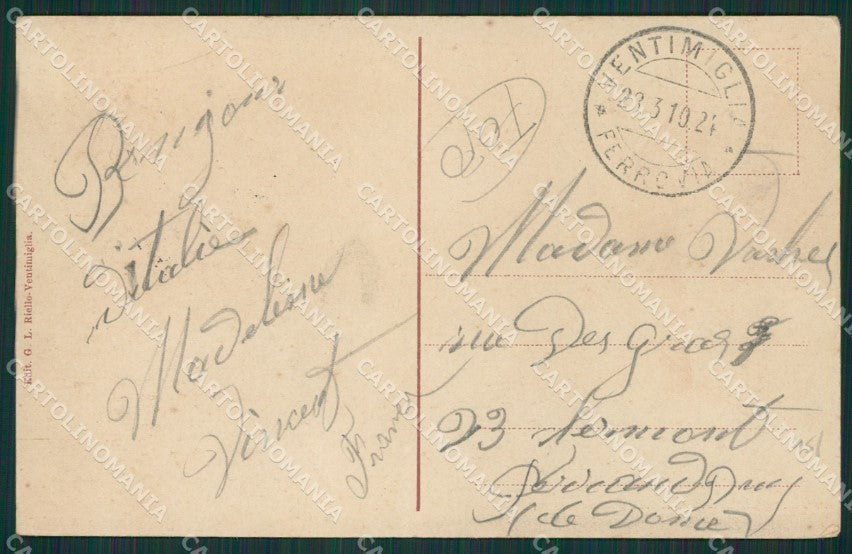 Bonjour
Italie
Madeleine
Vincent
France
Edit. G. L. Riello-Ventimiglia.
VENTIMIGLIA
* 23.3.10.24 *
FERROVIA
Madame
rue des Gras
23 Clermont
Ferrand
de Dome
CARTOLINOMANIA